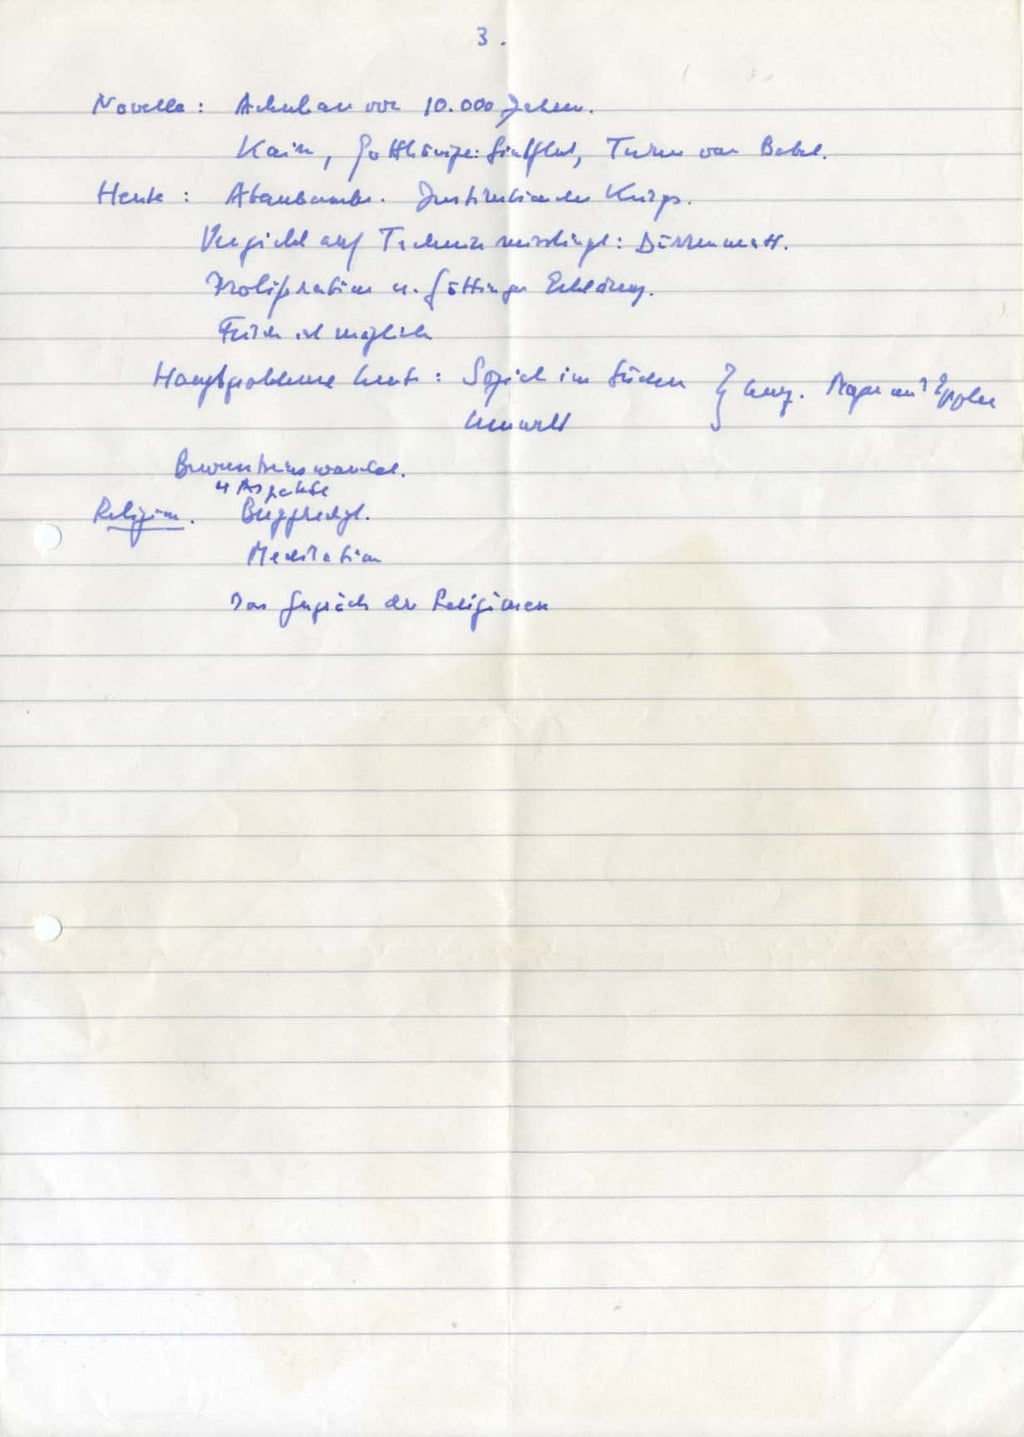 3.
Novelle: Ackerbau vor 10.000 Jahren.
Kain, Gottkönige: Sintflut, Turm von Babel.
Heute: Atombombe. Institution des Kriegs.
Verzicht auf Technik misslingt: Dürrenmatt.
Proliferation u. Göttinger Erklärung.
Friede ist möglich
Hauptprobleme heute: Sozial im Süden
Umwelt
Bewusstseinswandel.
4 Aspekte
Religion. Bergpredigt.
Meditation
Das Gespräch der Religionen